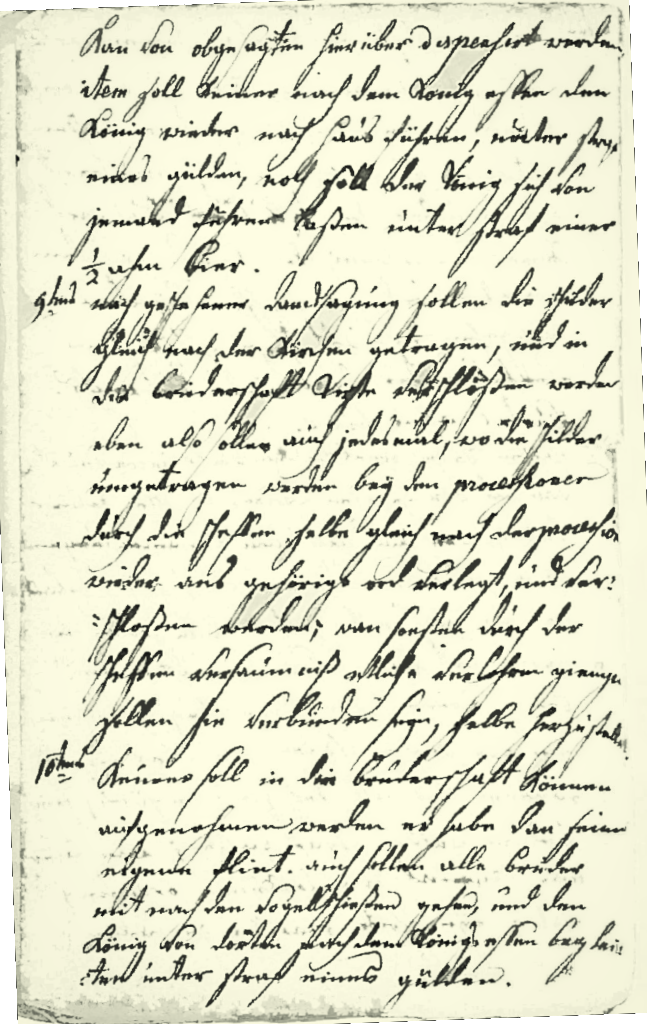 Kan von obgesagten hierüber dispensirt werden,
item soll Keiner nach dem König essen den
König wieder nach haus führen, unter straf
eines gülden, noch soll der König sich von
jemand führen laßen unter straf einer
½ ahm bier.
9tens nach geschehener dancksagung sollen die schilder
gleich nach der Kirchen getragen, und in
der bruderschaft Kiste verschloßen werden
eben also sollen auch jedesmal, wo die schilder
umgetragen werden bey den processionen
durch die scheffen selbe gleich nach der procession
wieder ans gehörige ord verlegt, und ver=
=schloßen werden; wan sonsten durch der
scheffen versäumniß etliche verlohren giengen
sollen sie verbunden seyn, selbe herzustellen.
10tens Keiner soll in die bruderschaft können
aufgenohmen werden er habe dan seine
eigene flint. auch sollen alle brüder
mit nach den vogelschießen gehen, und den
König von dorten nach dem Königs essen beglei=
=ten unter straf eines gülden.